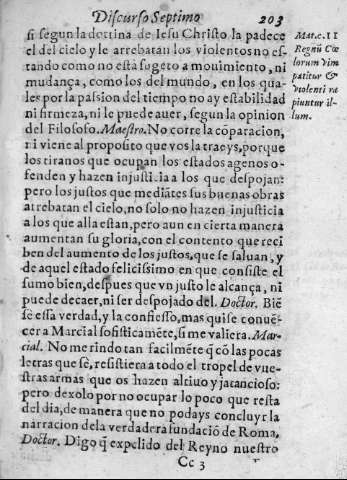 Discurso Septimo 203
si segun la dottrina de Iesu Christo la padece
el del cielo y le arrebatan los violentos no es-
tando como no està sugeto a mouimiento, ni
mudança, como los del mundo, en los qua-
les por la passion del tiempo no ay estabilidad
ni firmeza, ni le puede auer, segun la opinion
del Filosofo. Maestro. No corre la coparacion,
ni viene al proposito que vos la traeys, porque
los tiranos que ocupan los estados agenos o-
fenden y hazen injusticia a los que despojan:
pero los justos que mediātes sus buenas obras
arrebatan el cielo, no solo no hazen injusticia
a los que alla estan, pero aun en cierta manera
aumentan su gloria, con el contento que reci
ben del aumento de los justos, que se saluan, y
de aquel estado felicissimo en que consiste el
sumo bien, despues que vn justo le alcança, ni
puede decaer, ni ser despojado del. Doctor. Biē
sè essa verdad, y la confiesso, mas quise conuē-
cer a Marcial sofisticamēte, si me valiera. Mar-
cial. No me rindo tan facilmēte q̄ cō las pocas
letras que sè, resistiera a todo el tropel de vue-
stras armas que os hazen altiuo y jatancioso:
pero dexolo por no ocupar lo poco que resta
del dia, de manera que no podays concluyr la
narracion dela verdadera fundaciō de Roma.
Doctor. Digo q̄ expelido del Reyno nuestro
Cc 3
Mat. c. 11
Regnū Cœ
lorum vim
patitur &
violenti ra
piuntur il-
lum.